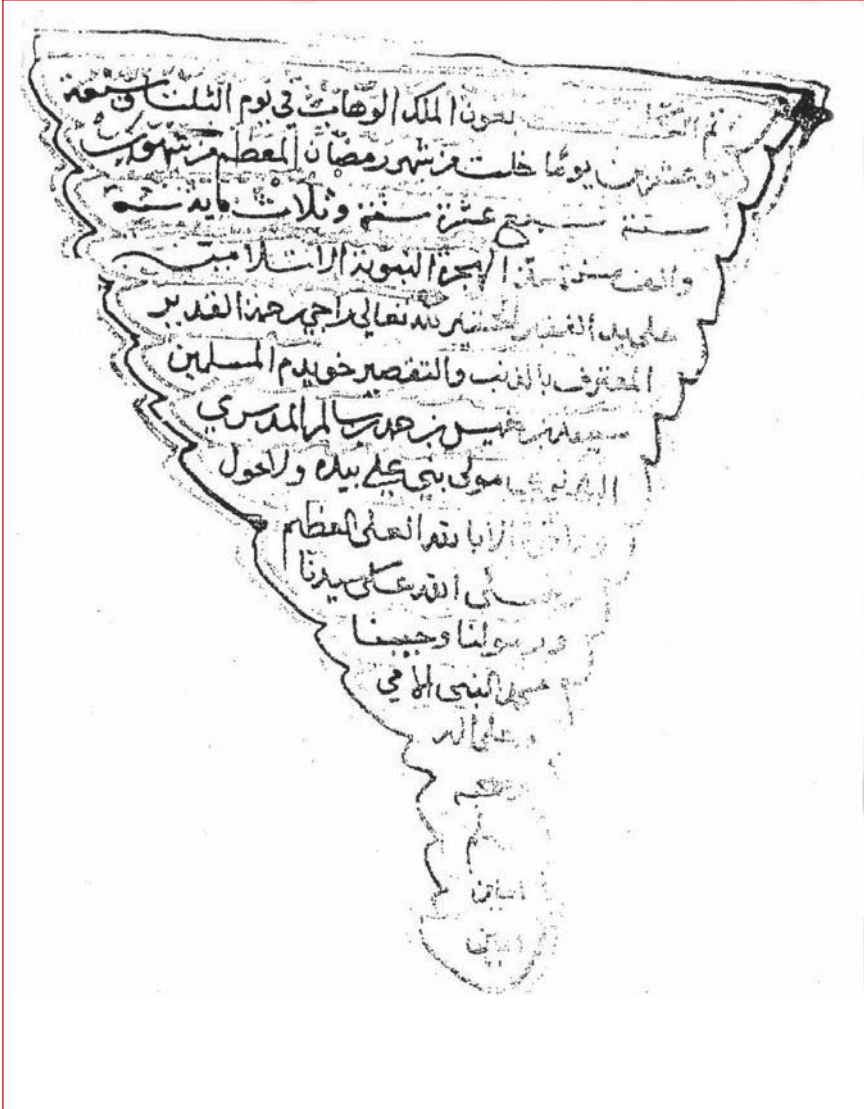 تم الكتاب بعون الملك الوهاب في يوم الثلثا وتسعة
وعشرين يوما خلت من شهر رمضان المعظم من شهور
سنة سبع عشرة سنة وثلاث ماية سنة
والف سنة الهجرة النبوية الاسلامية
الفقير لله تعالى راجي رحمة القدير
المعترف بالذنب والتقصير خويدم المسلمين
بن خميس بن حمد بن سالم المدسري
مولى بني علي بيده ولا حول
الا بالله العلي العظيم
وصلى الله على سيدنا
ورسولنا وحبيبنا
محمد النبي الامي
وعلى اله
وصحبه
وسلم
امين
امين